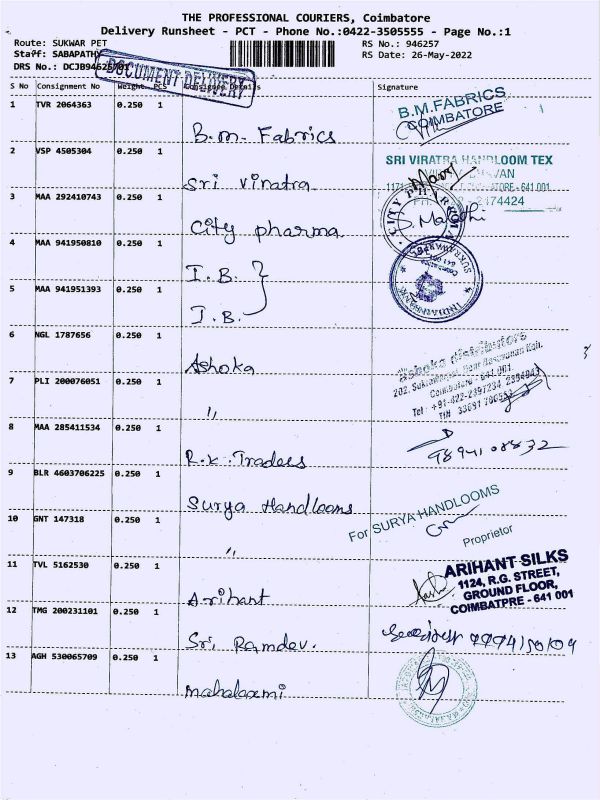 THE PROFESSIONAL COURIERS, Coimbatore
Delivery Runsheet - PCT - Phone No.:0422-3505555 - Page No.:1
Route: SUKWAR PET
RS No.: 946257
Staff: SABAPATHY
RS Date: 26-May-2022
DRS No.: DCJB94625701
DOCUMENT DELIVERY
S No Consignment No Weight PCS Consignee Details Signature
1 TVR 2064363 0.250 1
B.M. Fabrics
B.M.FABRICS
COIMBATORE
2 VSP 4505304 0.250 1
Sri Vinatra
SRI VIRATRA HANDLOOM TEX
641 001
2174424
3 MAA 292410743 0.250 1
City pharma
CITY PHARMA
4 MAA 941950810 0.250 1
I.B.
5 MAA 941951393 0.250 1
I.B.
INDIAN BANK
6 NGL 1787656 0.250 1
Ashoka
Ashoka distributors
Coimbatore - 641 001.
Tel : +91-422-2397234
7 PLI 200076051 0.250 1
"
8 MAA 285411534 0.250 1
R.K. Traders
9894108832
9 BLR 4603706225 0.250 1
Surya Handlooms
For SURYA HANDLOOMS
Proprietor
10 GNT 147318 0.250 1
"
11 TVL 5162530 0.250 1
Arihant
ARIHANT SILKS
1124, R.G. STREET,
GROUND FLOOR,
COIMBATPRE - 641 001
12 TMG 200231101 0.250 1
Sri Ramdev.
13 AGH 530065709 0.250 1
Mahalaxmi